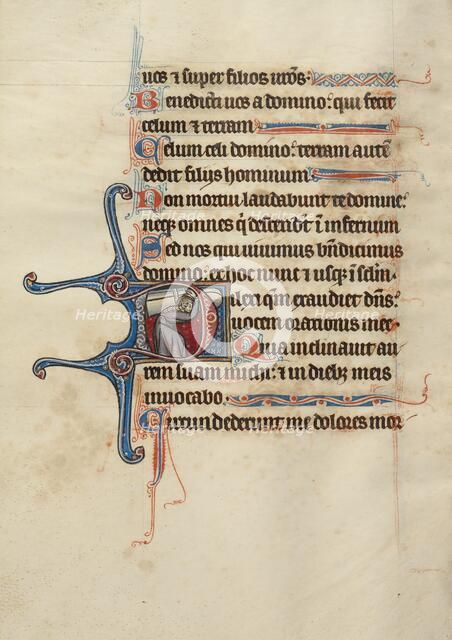 uos ⁊ super filios ur̃os:
Benedicti uos a domino: qui fecit
celum ⁊ terram
Celum celi domino: terram autẽ
dedit filiis hominum
Non mortui laudabunt te domine:
neqꝫ omnes q̃ descendũt in infernum
Sed nos qui uiuimus bñdicimus
domino: ex hoc nunc ⁊ usqꝫ in sclm̃.
Dilexi qm̃ exaudiet dñs:
uocem orationis mee
Quia inclinauit au
rem suam michi: ⁊ in diebꝫ meis
inuocabo.
Circumdederunt me dolores mor
Heritage Heritage Heritage